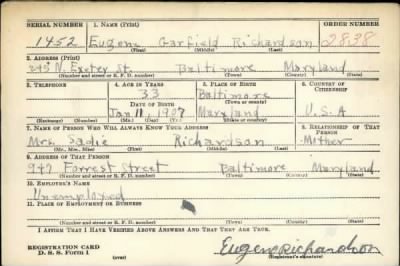 SERIAL NUMBER 1. NAME (Print) ORDER NUMBER
1452 Eugene Garfield Richardson 2838
(First) (Middle) (Last)
2. ADDRESS (Print)
245 N. Exeter St. Baltimore Maryland
(Number and street or R. F. D. number) (Town) (County) (State)
3. TELEPHONE 4. AGE IN YEARS 5. PLACE OF BIRTH 6. COUNTRY OF CITIZENSHIP
33 Baltimore
DATE OF BIRTH (Town or county)
Jan 11 1907 Maryland U.S.A
(Exchange) (Number) (Mo.) (Day) (Yr.) (State or country)
7. NAME OF PERSON WHO WILL ALWAYS KNOW YOUR ADDRESS 8. RELATIONSHIP OF THAT PERSON
Mrs. Sadie Richardson Mother
(Mr., Mrs., Miss) (First) (Middle) (Last)
9. ADDRESS OF THAT PERSON
947 Forrest Street Baltimore Maryland
(Number and street or R. F. D. number) (Town) (County) (State)
10. EMPLOYER'S NAME
Unemployed
11. PLACE OF EMPLOYMENT OR BUSINESS
(Number and street or R. F. D. number) (Town) (County) (State)
I AFFIRM THAT I HAVE VERIFIED ABOVE ANSWERS AND THAT THEY ARE TRUE.
REGISTRATION CARD
D. S. S. Form 1 (over) Eugene Richardson
(Registrant's signature)